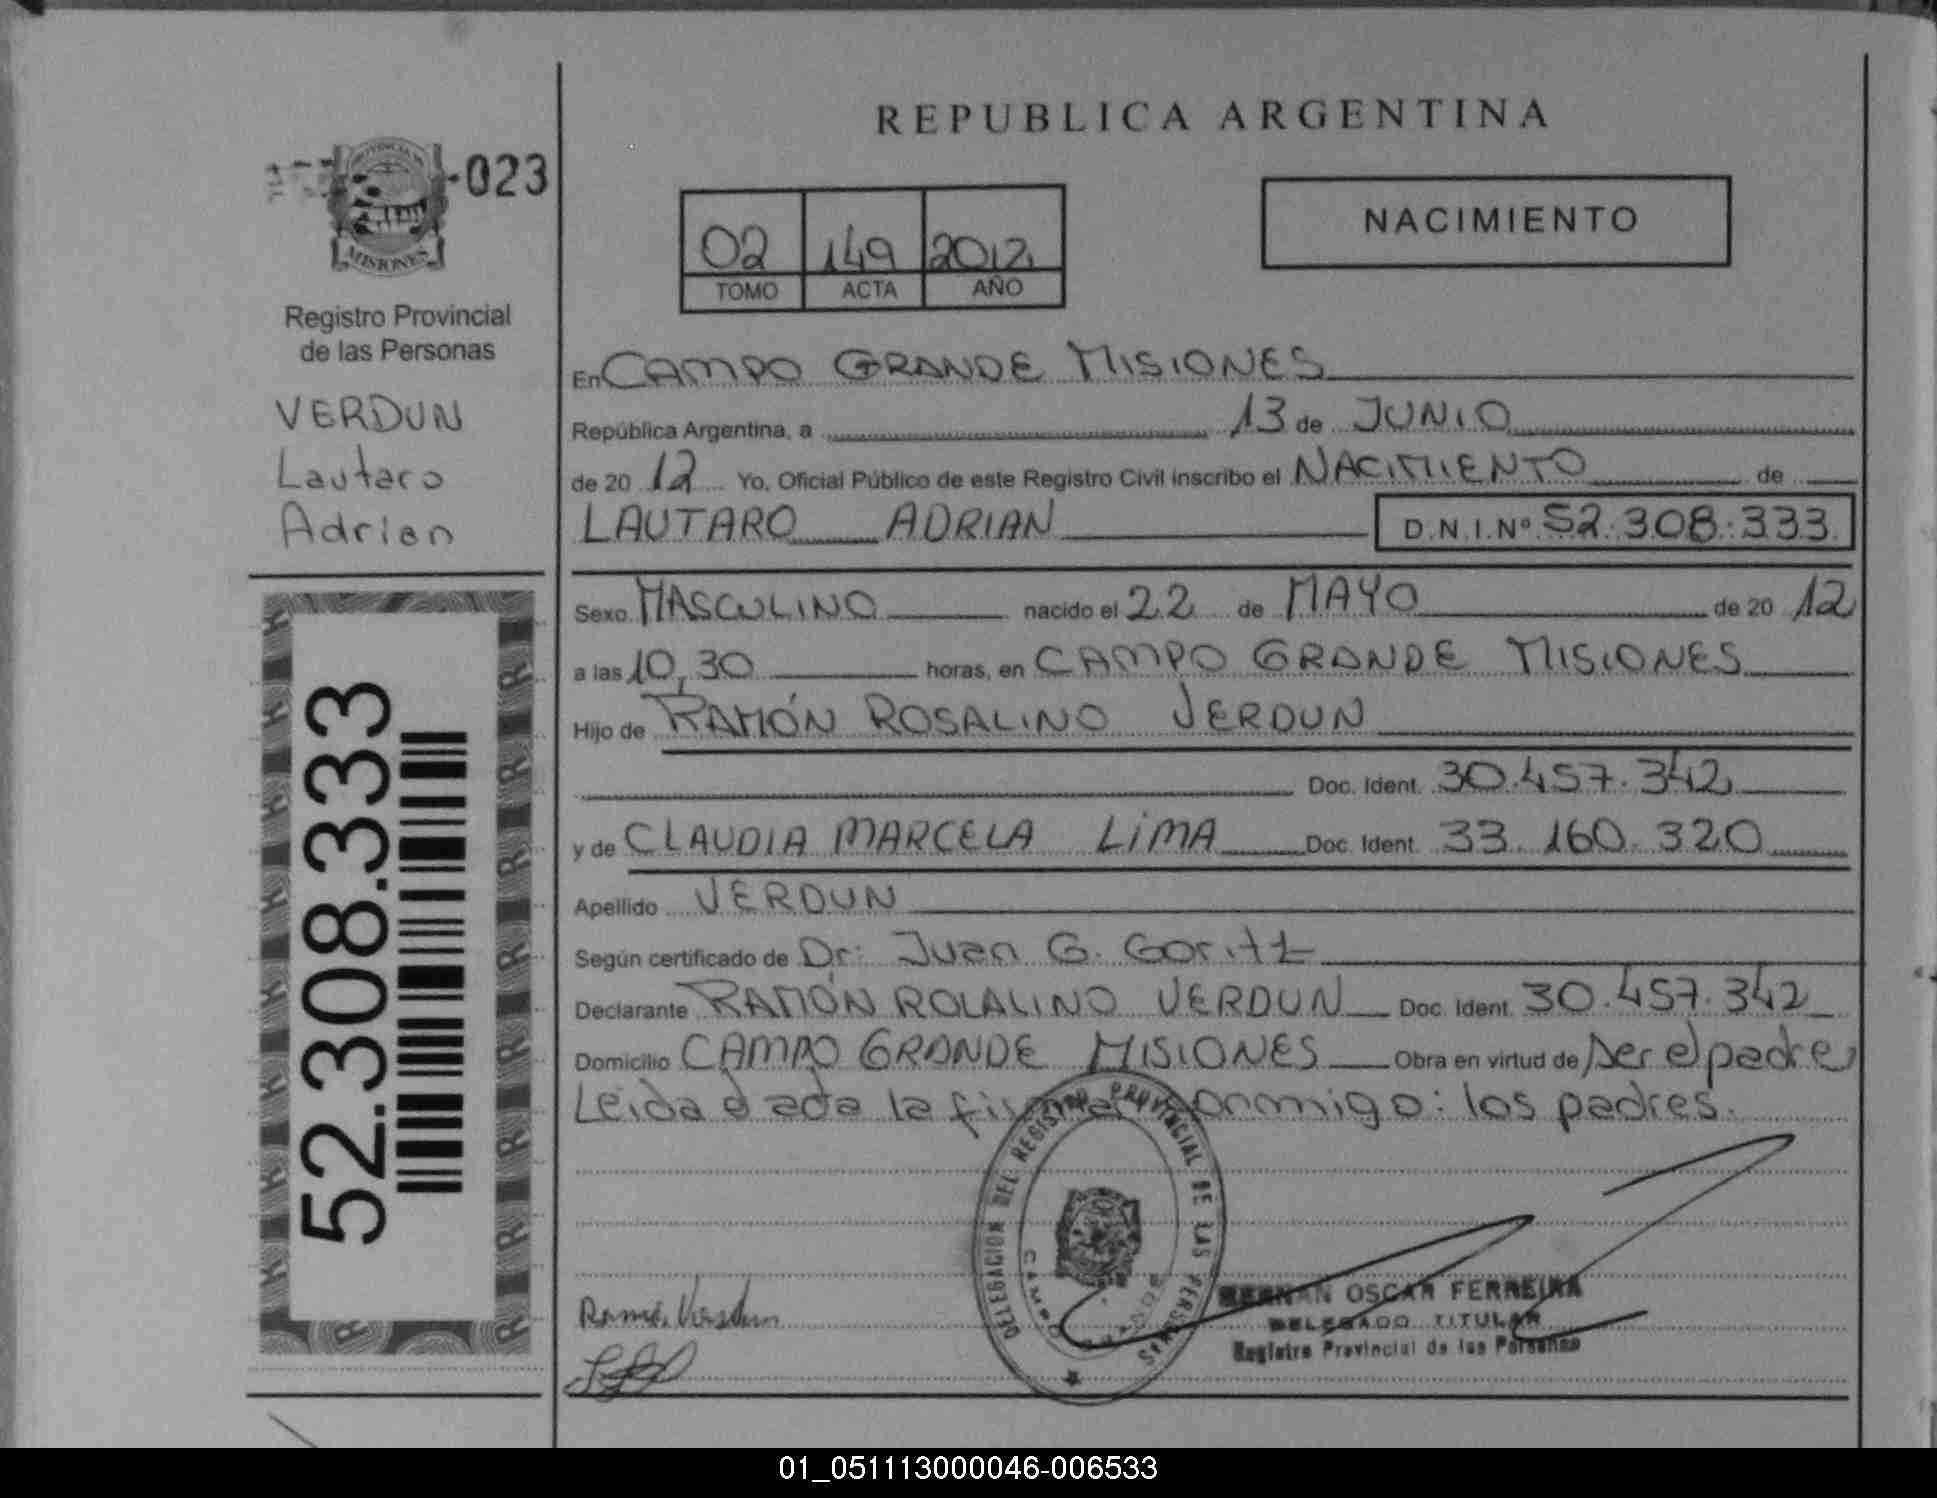 REPUBLICA ARGENTINA
PROVINCIA DE
MISIONES
-023
Registro Provincial
de las Personas
VERDUN
Lautaro
Adrian
52.308.333
02 149 2012
TOMO ACTA AÑO
NACIMIENTO
En CAMPO GRANDE MISIONES
República Argentina, a 13 de JUNIO
de 20 12 Yo, Oficial Público de este Registro Civil inscribo el NACIMIENTO de
LAUTARO ADRIAN D.N.I.Nº 52.308.333
Sexo MASCULINO nacido el 22 de MAYO de 20 12
a las 10,30 horas, en CAMPO GRANDE MISIONES
Hijo de RAMÓN ROSALINO VERDUN
Doc. Ident. 30.457.342
y de CLAUDIA MARCELA LIMA Doc. Ident. 33.160.320
Apellido VERDUN
Según certificado de Dr: Juan G. Goritz
Declarante RAMÓN ROLALINO VERDUN Doc. Ident. 30.457.342
Domicilio CAMPO GRANDE MISIONES Obra en virtud de ser el padre
Leida el acta la firman conmigo: los padres.
DELEGACION DEL REGISTRO PROVINCIAL DE LAS PERSONAS
CAMPO GRANDE
Verdun
HERNAN OSCAR FERREIRA
DELEGADO TITULAR
Registro Provincial de las Personas
01_051113000046-006533